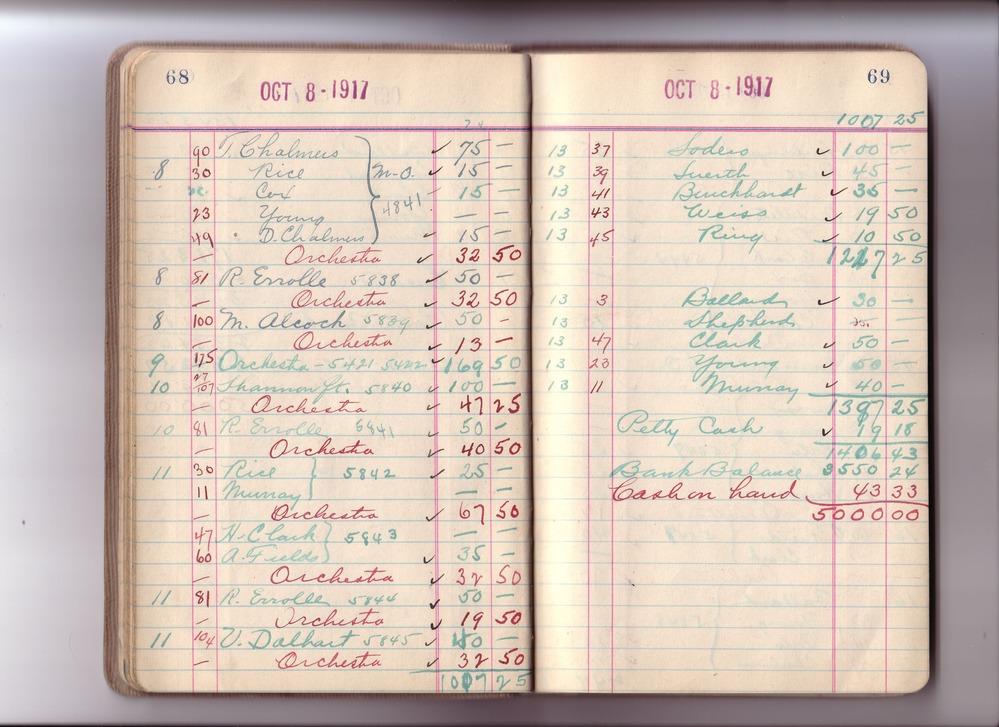 68
OCT 8 - 1917
90 T. Chalmers ✓ 75 —
8 30 Rice M-O. ✓ 15 —
Cox 4841 15 —
23 Young — —
49 D. Chalmers ✓ 15 —
— Orchestra ✓ 32 50
8 81 R. Errolle 5838 ✓ 50 —
— Orchestra ✓ 32 50
8 100 M. Alcock 5839 ✓ 50 —
— Orchestra ✓ 13 —
9 175 Orchestra - 5421 5422 ✓ 169 50
10 27/107 Shannon 4t. 5840 ✓ 100 —
— Orchestra ✓ 47 25
10 81 R. Errolle 5841 ✓ 50 —
— Orchestra ✓ 40 50
11 30 Rice 5842 ✓ 25 —
11 Murray — —
— Orchestra ✓ 67 50
47 H. Clark 5843 — —
60 A. Fields ✓ 35 —
— Orchestra ✓ 32 50
11 81 R. Errolle 5844 ✓ 50 —
— Orchestra ✓ 19 50
11 104 V. Dalhart 5845 ✓ 40 —
— Orchestra ✓ 32 50
1007 25
69
OCT 8 - 1917
1007 25
13 37 Soders ✓ 100 —
13 39 Suerth ✓ 45 —
13 41 Burckhardt ✓ 35 —
13 43 Weiss ✓ 19 50
13 45 Ring ✓ 10 50
1217 25
13 3 Ballard ✓ 30 —
13 Shepherd
13 47 Clark ✓ 50 —
13 23 Young ✓ 50 —
13 11 Murray ✓ 40 —
1387 25
Petty Cash ✓ 19 18
1406 43
Bank Balance 3550 24
Cash on hand 43 33
5000 00